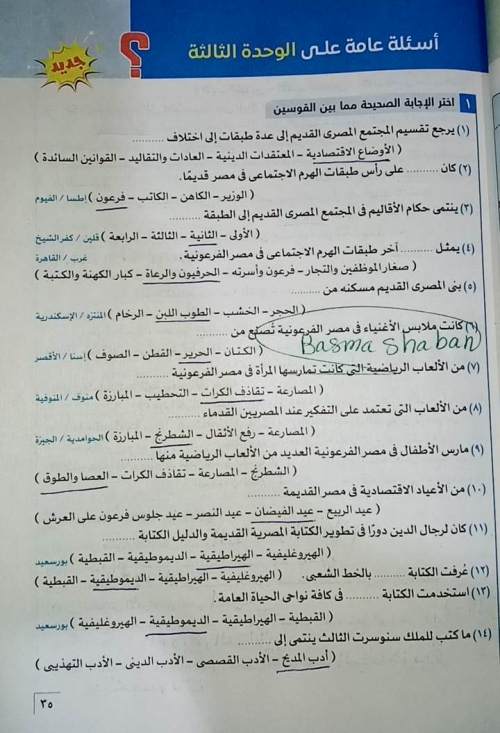 أسئلة عامة على الوحدة الثالثة
؟
جديد
١ اختر الإجابة الصحيحة مما بين القوسين
(١) يرجع تقسيم المجتمع المصرى القديم إلى عدة طبقات إلى اختلاف ..........
( الأوضاع الاقتصادية - المعتقدات الدينية - العادات والتقاليد - القوانين السائدة )
(٢) كان .......... على رأس طبقات الهرم الاجتماعى فى مصر قديمًا.
( الوزير - الكاهن - الكاتب - فرعون ) إطسا / الفيوم
(٣) ينتمى حكام الأقاليم فى المجتمع المصرى القديم إلى الطبقة ..........
( الأولى - الثانية - الثالثة - الرابعة ) قلين / كفر الشيخ
(٤) يمثل .......... آخر طبقات الهرم الاجتماعى فى مصر الفرعونية. غرب / القاهرة
( صغار الموظفين والتجار - فرعون وأسرته - الحرفيون والرعاة - كبار الكهنة والكتبة )
(٥) بنى المصرى القديم مسكنه من ..........
( الحجر - الخشب - الطوب اللبن - الرخام ) المنتزه / الإسكندرية
(٦) كانت ملابس الأغنياء فى مصر الفرعونية تُصنع من ..........
Basma Shaban
( الكتان - الحرير - القطن - الصوف ) إسنا / الأقصر
(٧) من الألعاب الرياضية التى كانت تمارسها المرأة فى مصر الفرعونية ..........
( المصارعة - تقاذف الكرات - التحطيب - المبارزة ) منوف / المنوفية
(٨) من الألعاب التى تعتمد على التفكير عند المصريين القدماء ..........
( المصارعة - رفع الأثقال - الشطرنج - المبارزة ) الحوامدية / الجيزة
(٩) مارس الأطفال فى مصر الفرعونية العديد من الألعاب الرياضية منها ..........
( الشطرنج - المصارعة - تقاذف الكرات - العصا والطوق )
(١٠) من الأعياد الاقتصادية فى مصر القديمة ..........
( عيد الربيع - عيد الفيضان - عيد النصر - عيد جلوس فرعون على العرش )
(١١) كان لرجال الدين دورًا فى تطوير الكتابة المصرية القديمة والدليل الكتابة ..........
( الهيروغليفية - الهيراطيقية - الديموطيقية - القبطية ) بورسعيد
(١٢) عُرفت الكتابة .......... بالخط الشعبى. ( الهيروغليفية - الهيراطيقية - الديموطيقية - القبطية )
(١٣) استخدمت الكتابة .......... فى كافة نواحى الحياة العامة.
( القبطية - الهيراطيقية - الديموطيقية - الهيروغليفية ) بورسعيد
(١٤) ما كتب للملك سنوسرت الثالث ينتمى إلى ..........
( أدب المديح - الأدب القصصى - الأدب الدينى - الأدب التهذيبى )
٣٥